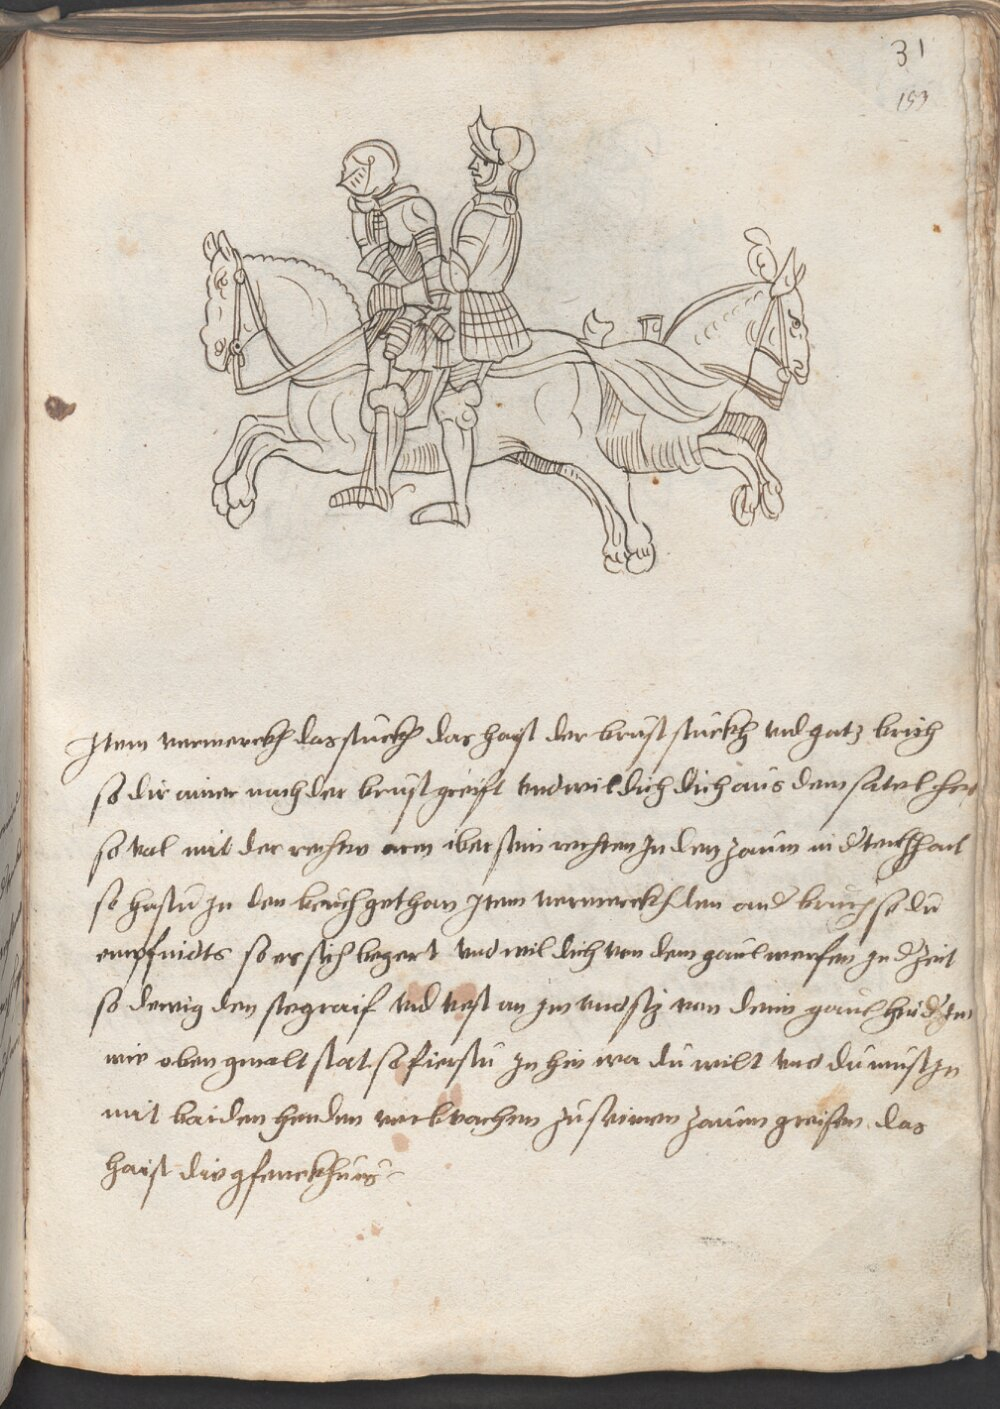 31
153
Item vermerckh das stuckh das hayst der brust stuckh vnd gatz bruch
so dir ainer nach der brust greift vnd wil dich dich aus dem satel
so val mit der rechten arm iber sein rechten In den zaum
so hastu In den bruch gethan Item vermerckh den and bruch so du
empfindts so er sich begert vnd wil dich von dem gaul werfen In d Zeit
so den stegraif vnd vest an Im vnd siz von deim gaul
wie oben gmalt stat so fierstu In hin wa du wilt vnd du must In
mit baiden henden zu seinen zaum greifen das
haist die gfenckhnus